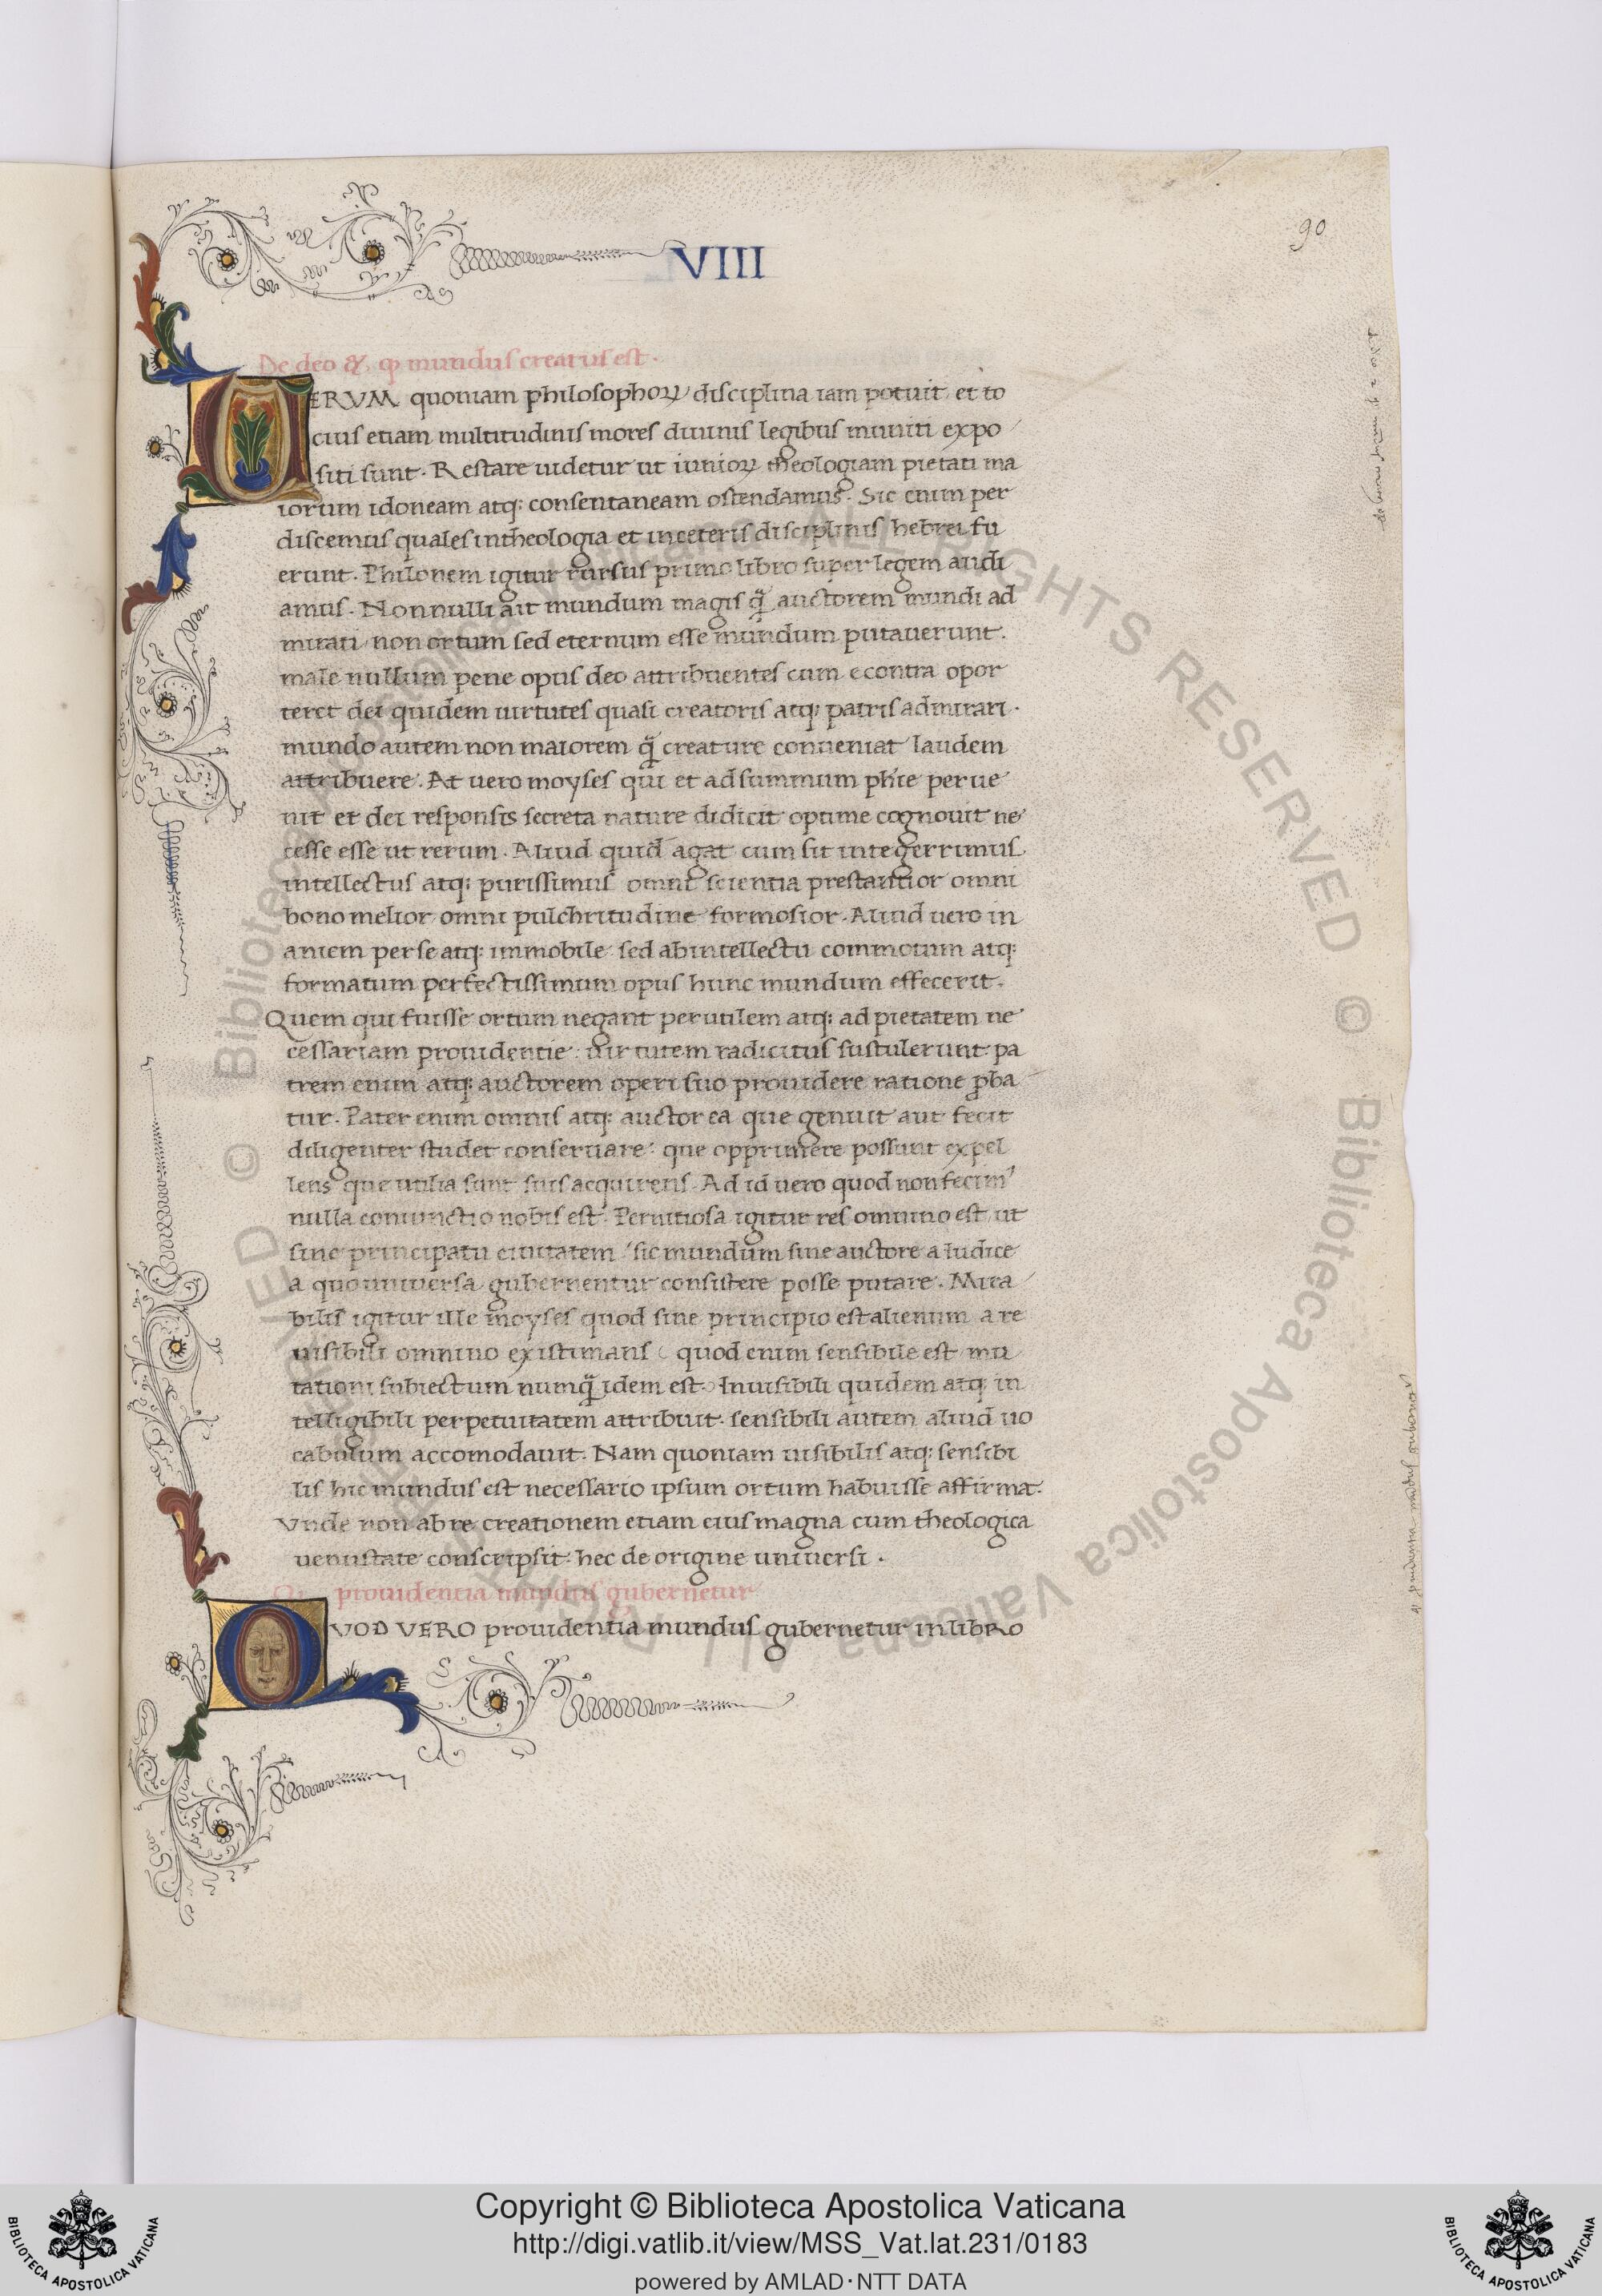 90
VIII
De deo & ꝙ mundus creatus est.
VERVM quoniam philosophoꝝ disciplina iam potuit et to
cius etiam multitudinis mores diuinis legibus muniti expo
siti sunt. Restare uidetur ut iunioꝝ theologiam pietati ma
iorum idoneam atq: consentaneam ostendamus. Sic enim per
discemus quales in theologia et in ceteris disciplinis hebrei fu
erunt. Philonem igitur rursus primo libro super legem audi
amus. Nonnulli ait mundum magis q̃ auctorem mundi ad
mirati non ortum sed eternum esse mundum putauerunt.
male nullum pene opus deo attribuentes cum econtra opor
teret dei quidem uirtutes quasi creatoris atq: patris admirari.
mundo autem non maiorem q̃ creature conueniat laudem
attribuere. At uero moyses qui et ad summum phie perue
nit et dei responsis secreta nature didicit optime cognouit ne
cesse esse ut rerum. Aliud quid agat cum sit integerrimus
intellectus atq: purissimus omni scientia prestantior omni
bono melior omni pulchritudine formosior. Aliud uero in
aniem per se atq: immobile sed ab intellectu commotum atq:
formatum perfectissimum opus hunc mundum effecerit.
Quem qui fuisse ortum negant perutilem atq: ad pietatem ne
cessariam prouidentie uirtutem radicitus sustulerunt. pa
trem enim atq: auctorem operi suo prouidere ratione ꝓba
tur. Pater enim omnis atq: auctor ea que genuit aut fecit
diligenter studet conseruare: que opprimere possunt expel
lens que utilia sunt suis acquirens. Ad id uero quod non fecim᾿
nulla coniunctio nobis est. Pernitiosa igitur res omnino est ut
sine principatu ciuitatem sic mundum sine auctore a Iudice
a quo uniuersa gubernentur consistere posse putare. Mira
bilis igitur ille moyses quod sine principio est alienum a re
uisibili omnino existimans quod enim sensibile est mu
tationi subiectum numq̃ idem est. Inuisibili quidem atq: in
telligibili perpetuitatem attribuit. sensibili autem aliud uo
cabulum accomodauit. Nam quoniam uisibilis atq: sensibi
lis hic mundus est necessario ipsum ortum habuisse affirma.
Vnde non ab re creationem etiam eius magna cum theologica
uenustate conscripsit. hec de origine uniuersi.
prouidentia mundus gubernetur
QVOD VERO prouidentia mundus gubernetur in libro
Copyright © Biblioteca Apostolica Vaticana
http://digi.vatlib.it/view/MSS_Vat.lat.231/0183
powered by AMLAD·NTT DATA
BIBLIOTECA APOSTOLICA VATICANA
BIBLIOTECA APOSTOLICA VATICANA